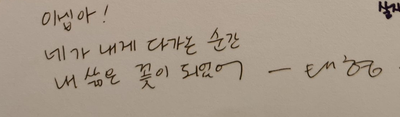 이셉아!
네가 내게 다가온 순간
내 삶은 꽃이 되었어 – 태형